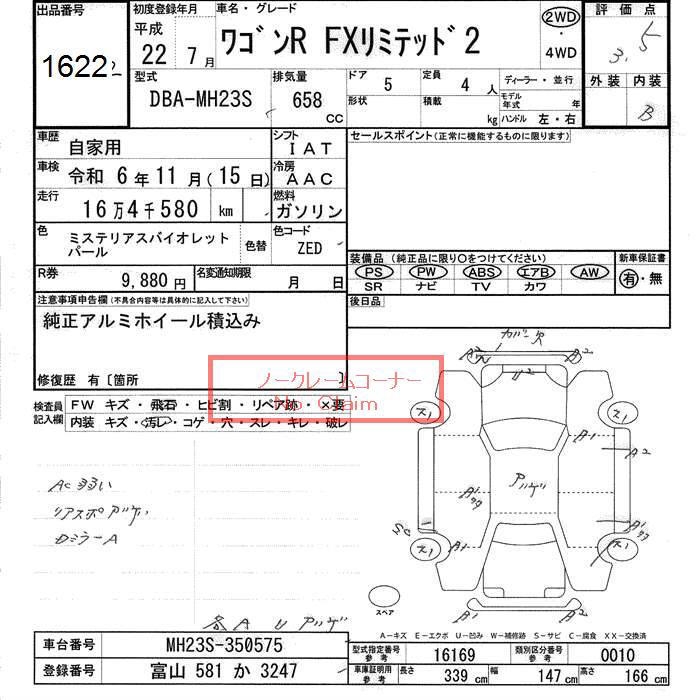 出品番号
1622
初度登録年月
平成
22 7月
車名・グレード
ワゴンR FXリミテッド2
2WD
・
4WD
評価点
3.5
外装 内装
B
型式
DBA-MH23S
排気量
658
CC
ドア
5
定員
4人
形状
積載
kg
ディーラー・並行
モデル年式 年
ハンドル 左・右
車歴
自家用
シフト
IAT
車検
令和 6年11月(15日)
冷房
AAC
走行
16万4千580 km
燃料
ガソリン
色
ミステリアスバイオレット
パール
色替
色コード
ZED
R券
9,880円
名変通知期限
月 日
セールスポイント(正常に機能するものに限ります)
装備品(純正品に限り○をつけてください)
PS PW ABS エアB AW
SR ナビ TV カワ
新車保証書
有・無
後日品
注意事項申告欄(不具合内容等は具体的に記入して下さい)
純正アルミホイール積込み
修復歴 有〔箇所 〕
ノークレームコーナー
No Claim
検査員
記入欄
FW キズ・飛石・ヒビ割・リペア跡・×要
内装 キズ・汚レ・コゲ・穴・スレ・キレ・破レ
AC弱い
リアスポアゲ
Dミラー A
各 A U アゲ
カバー欠
A2
A2
U2
ス1
ス1
A1
A2
アゲ
ス1
ス1
A1
A1
A2
スペア
A-キズ E-エクボ U-凹み W-補修跡 S-サビ C-腐食 XX-交換済
車台番号
MH23S-350575
登録番号
富山 581 か 3247
型式指定番号
参考
16169
類別区分番号
参考
0010
車庫証明用
参考
長さ
339 cm
幅
147 cm
高さ
166 cm